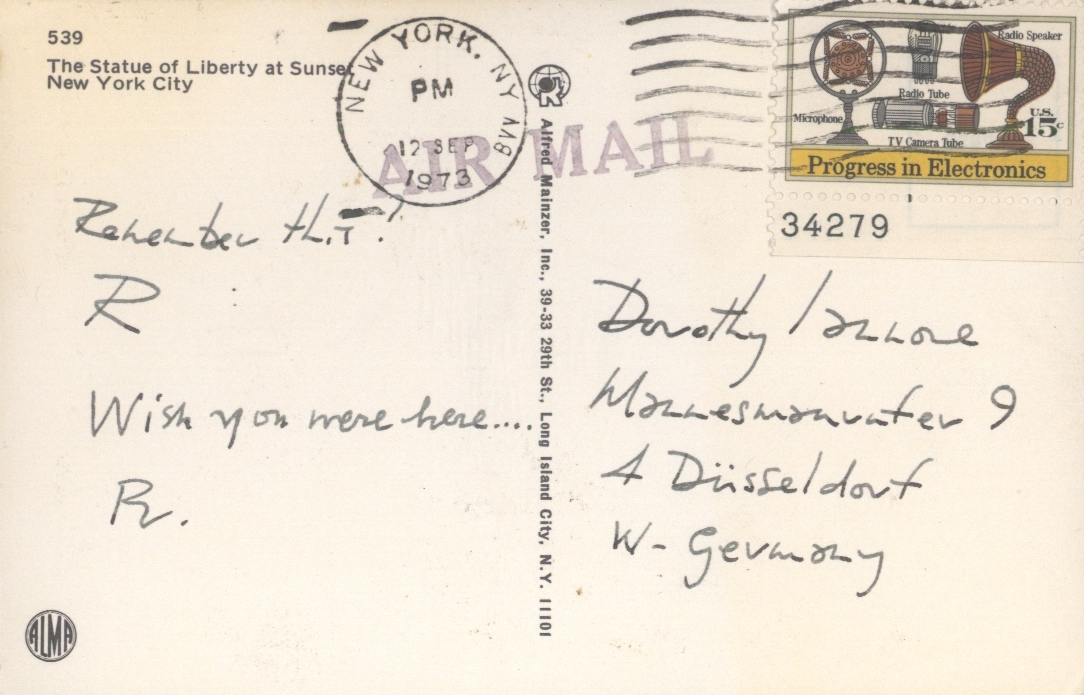 539
The Statue of Liberty at Sunset
New York City
NEW YORK, NY
PM
12 SEP
1973
AIR MAIL
Microphone
Radio Tube
Radio Speaker
TV Camera Tube
U.S.
15c
Progress in Electronics
34279
Remember this?
R
Wish you were here....
R.
Alfred Mainzer, Inc., 39-33 29th St., Long Island City, N.Y. 11101
Dorothy Iannone
Mannesmannufer 9
4 Düsseldorf
W-Germany
ALMA